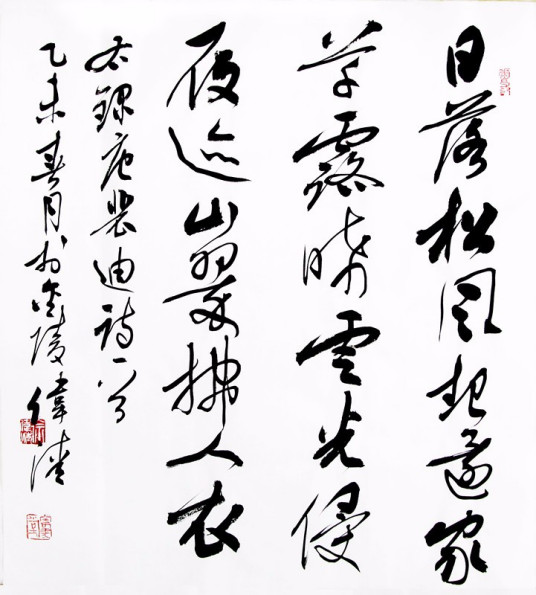 日落松风起還家
草露晞雲光侵
履迹山翠拂人衣
右錄唐裴迪詩一首
乙未春月於金陵偉